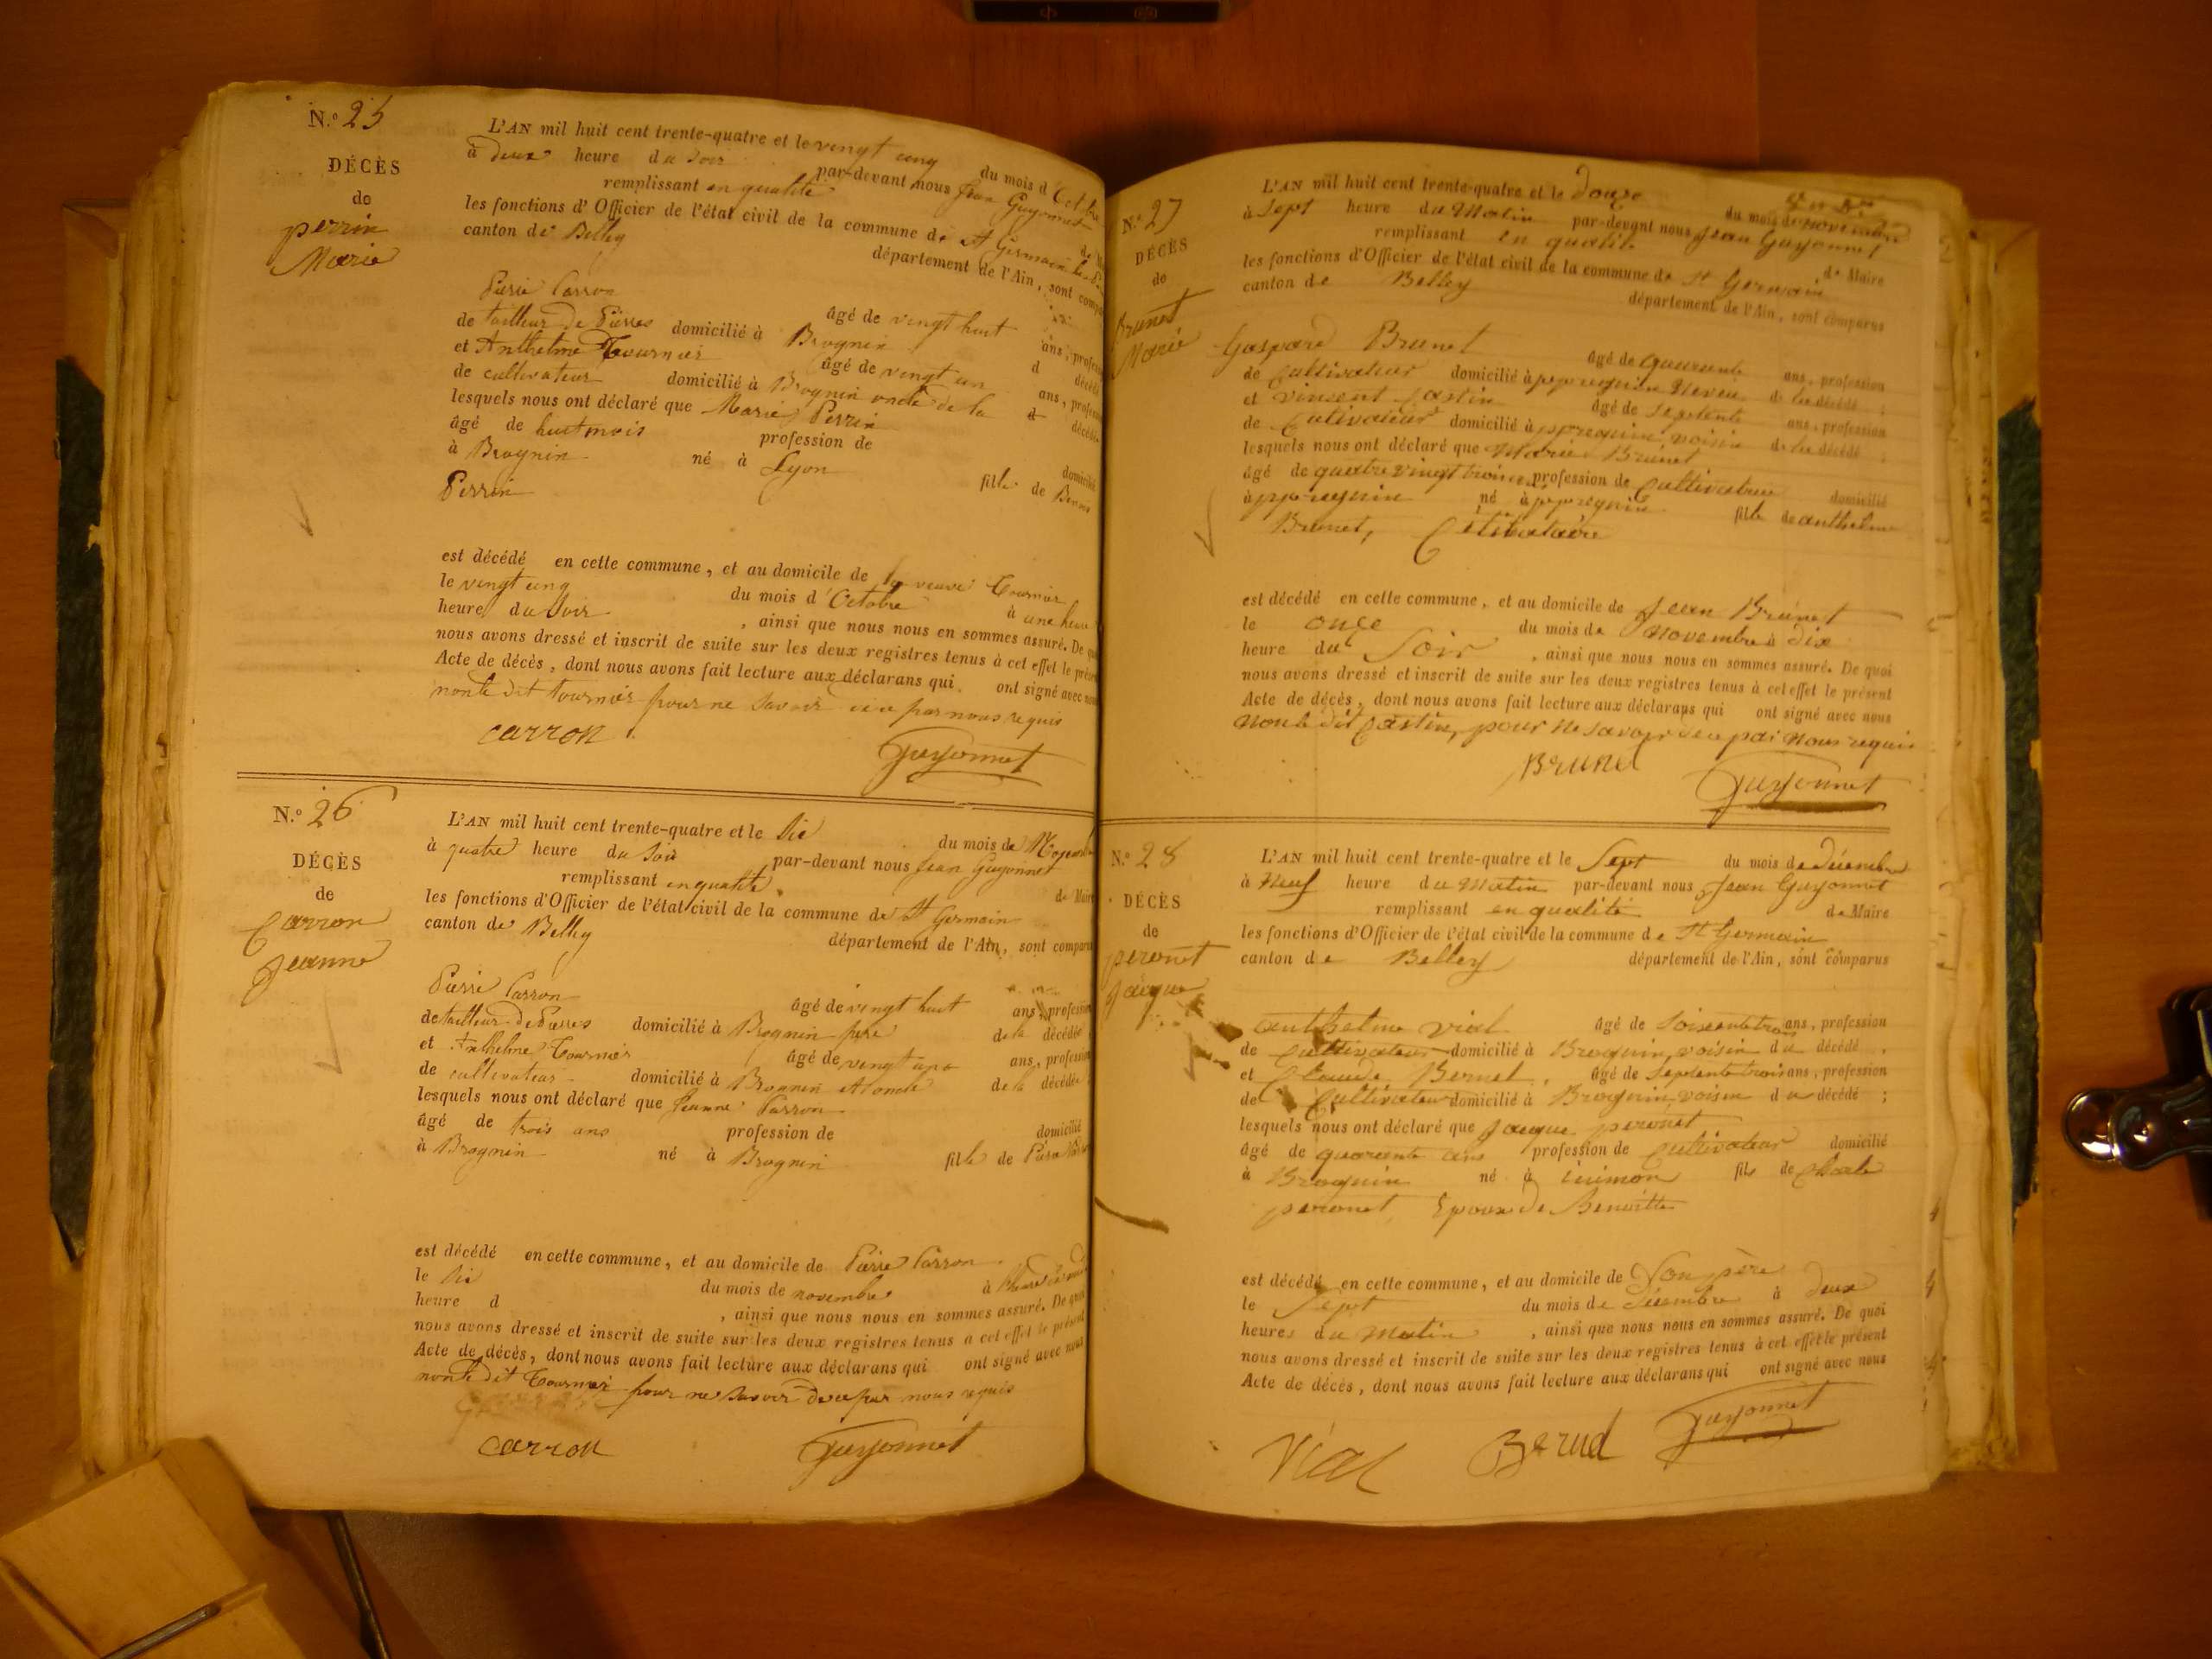 N.º 25
DÉCÈS
de
perrin
Marie
L'AN mil huit cent trente-quatre et le vingt cinq du mois d'Octobre
à deux heure du soir par-devant nous Jean Guyonnet
remplissant en qualité de
les fonctions d'Officier de l'état civil de la commune de St Germain les
canton de Belley département de l'Ain, sont compa
Pierre Carron âgé de vingt huit ans, profes
de tailleur de Pierres domicilié à Brognin d décéd
et Anthelme Tournier âgé de vingt un ans, profes
de cultivateur domicilié à Brognin oncle de la d décéd
lesquels nous ont déclaré que Marie Perrin
âgé de huit mois profession de domicilié
à Brognin né à Lyon fille de Benoit
Perrin
est décédé en cette commune, et au domicile de la veuve Tournier
le vingt cinq du mois d'Octobre à une heure
heure du Soir , ainsi que nous nous en sommes assuré. De quoi
nous avons dressé et inscrit de suite sur les deux registres tenus à cet effet le présen
Acte de décès, dont nous avons fait lecture aux déclarans qui ont signé avec nous
non le dit tournier pour ne savoir de ce par nous requis
carron
Guyonnet
N.º 26
DÉCÈS
de
Carron
Jeanne
L'AN mil huit cent trente-quatre et le Six du mois de Novembre
à quatre heure du Soir par-devant nous Jean Guyonnet
remplissant en qualité de Maire
les fonctions d'Officier de l'état civil de la commune de St Germain
canton de Belley département de l'Ain, sont comparu
Pierre Carron âgé de vingt huit ans, profession
de tailleur de Pierres domicilié à Brognin père de la décédée
et Anthelme Tournier âgé de vingt un ans, profession
de cultivateur domicilié à Brognin et oncle de la décédée
lesquels nous ont déclaré que Jeanne Carron
âgé de trois ans profession de domicilié
à Brognin né à Brognin fille de Pierre
est décédé en cette commune, et au domicile de Pierre Carron
le Six du mois de novembre à
heure d , ainsi que nous nous en sommes assuré. De quoi
nous avons dressé et inscrit de suite sur les deux registres tenus à cet effet le présent
Acte de décès, dont nous avons fait lecture aux déclarans qui ont signé avec nous
non le dit Tournier pour ne savoir de ce par nous requis
carron
Guyonnet
N.º 27
DÉCÈS
de
Brunet
Marie
L'AN mil huit cent trente-quatre et le douze du mois de novembre
à Sept heure du Matin par-devant nous Jean Guyonnet
remplissant en qualité de Maire
les fonctions d'Officier de l'état civil de la commune de St Germain
canton de Belley département de l'Ain, sont comparus
Gaspard Brunet âgé de quarante ans, profession
de Cultivateur domicilié à appregnin Neveu de la décédé ;
et vincent Castin âgé de Septente ans, profession
de Cultivateur domicilié à appregnin voisin de la décédé ;
lesquels nous ont déclaré que Marie Brunet
âgé de quatre vingt trois ans profession de Cultivatrice domicilié
à appregnin né à appregnin fille de anthelme
Brunet, Célibataire
est décédé en cette commune, et au domicile de Jean Brunet
le onze du mois de Novembre à dix
heure du Soir , ainsi que nous nous en sommes assuré. De quoi
nous avons dressé et inscrit de suite sur les deux registres tenus à cet effet le présent
Acte de décès, dont nous avons fait lecture aux déclarans qui ont signé avec nous
Non le dit Castin, pour Ne savoir de ce par Nous requis
Brunet
Guyonnet
N.º 28
DÉCÈS
de
peronet
Jacque
L'AN mil huit cent trente-quatre et le Sept du mois de décembre
à Neuf heure du Matin par-devant nous Jean Guyonnet
remplissant en qualité de Maire
les fonctions d'Officier de l'état civil de la commune de St Germain
canton de Belley département de l'Ain, sont comparus
anthelme vial âgé de Soixante trois ans, profession
de Cultivateur domicilié à Brognin, voisin du décédé ,
et Claude Bernet, âgé de Septente trois ans, profession
de Cultivateur domicilié à Brognin, voisin du décédé ;
lesquels nous ont déclaré que Jacque peronet
âgé de quarante ans profession de Cultivateur domicilié
à Brognin né à fils de Charle
peronet, Epoux de Benoitte
est décédé en cette commune, et au domicile de Son père
le Sept du mois de décembre à deux
heures du Matin , ainsi que nous nous en sommes assuré. De quoi
nous avons dressé et inscrit de suite sur les deux registres tenus à cet effet le présent
Acte de décès, dont nous avons fait lecture aux déclarans qui ont signé avec nous
Vial
Guyonnet